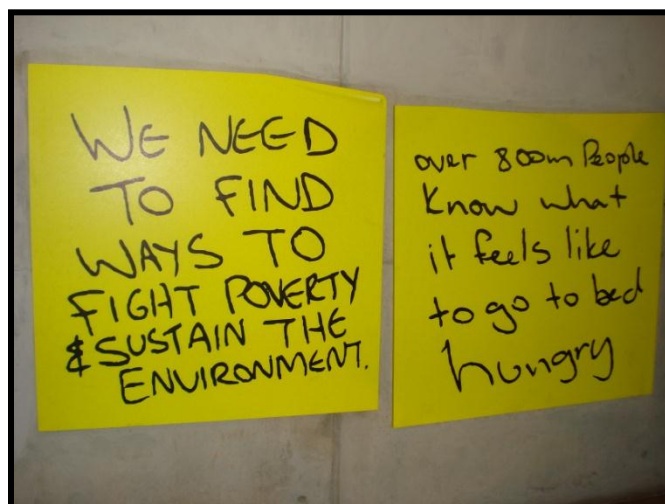 WE NEED
TO FIND
WAYS TO
FIGHT POVERTY
& SUSTAIN THE
ENVIRONMENT.
over 800m People
Know what
it feels like
to go to bed
hungry